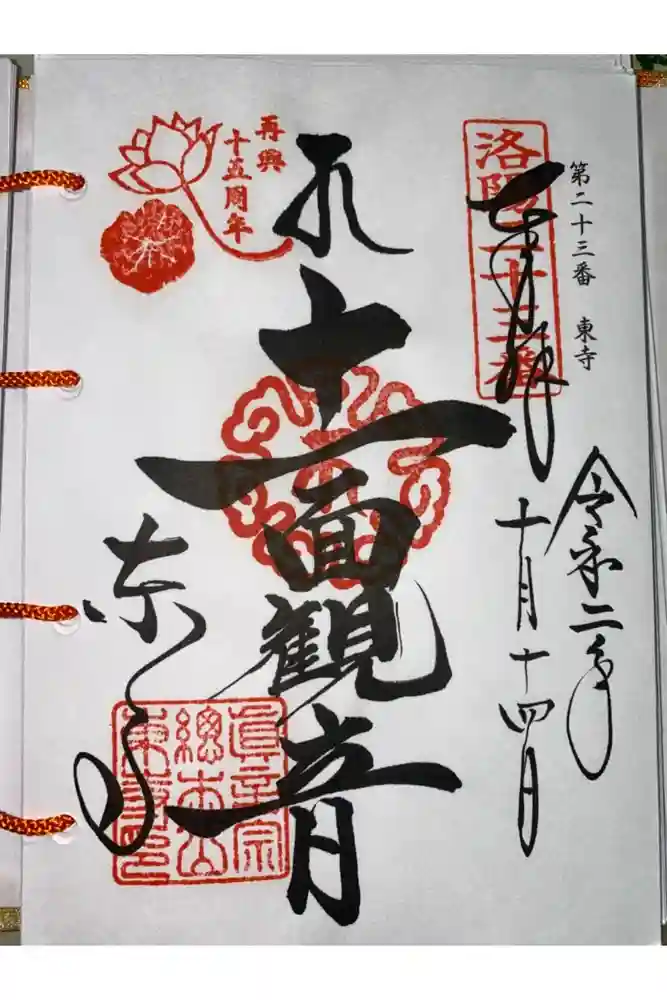 第二十三番 東寺
洛陽三十三番
奉拝
令和二年
十月十四日
再興
十五周年
十一面観音
東寺
眞言宗
總本山
東寺印